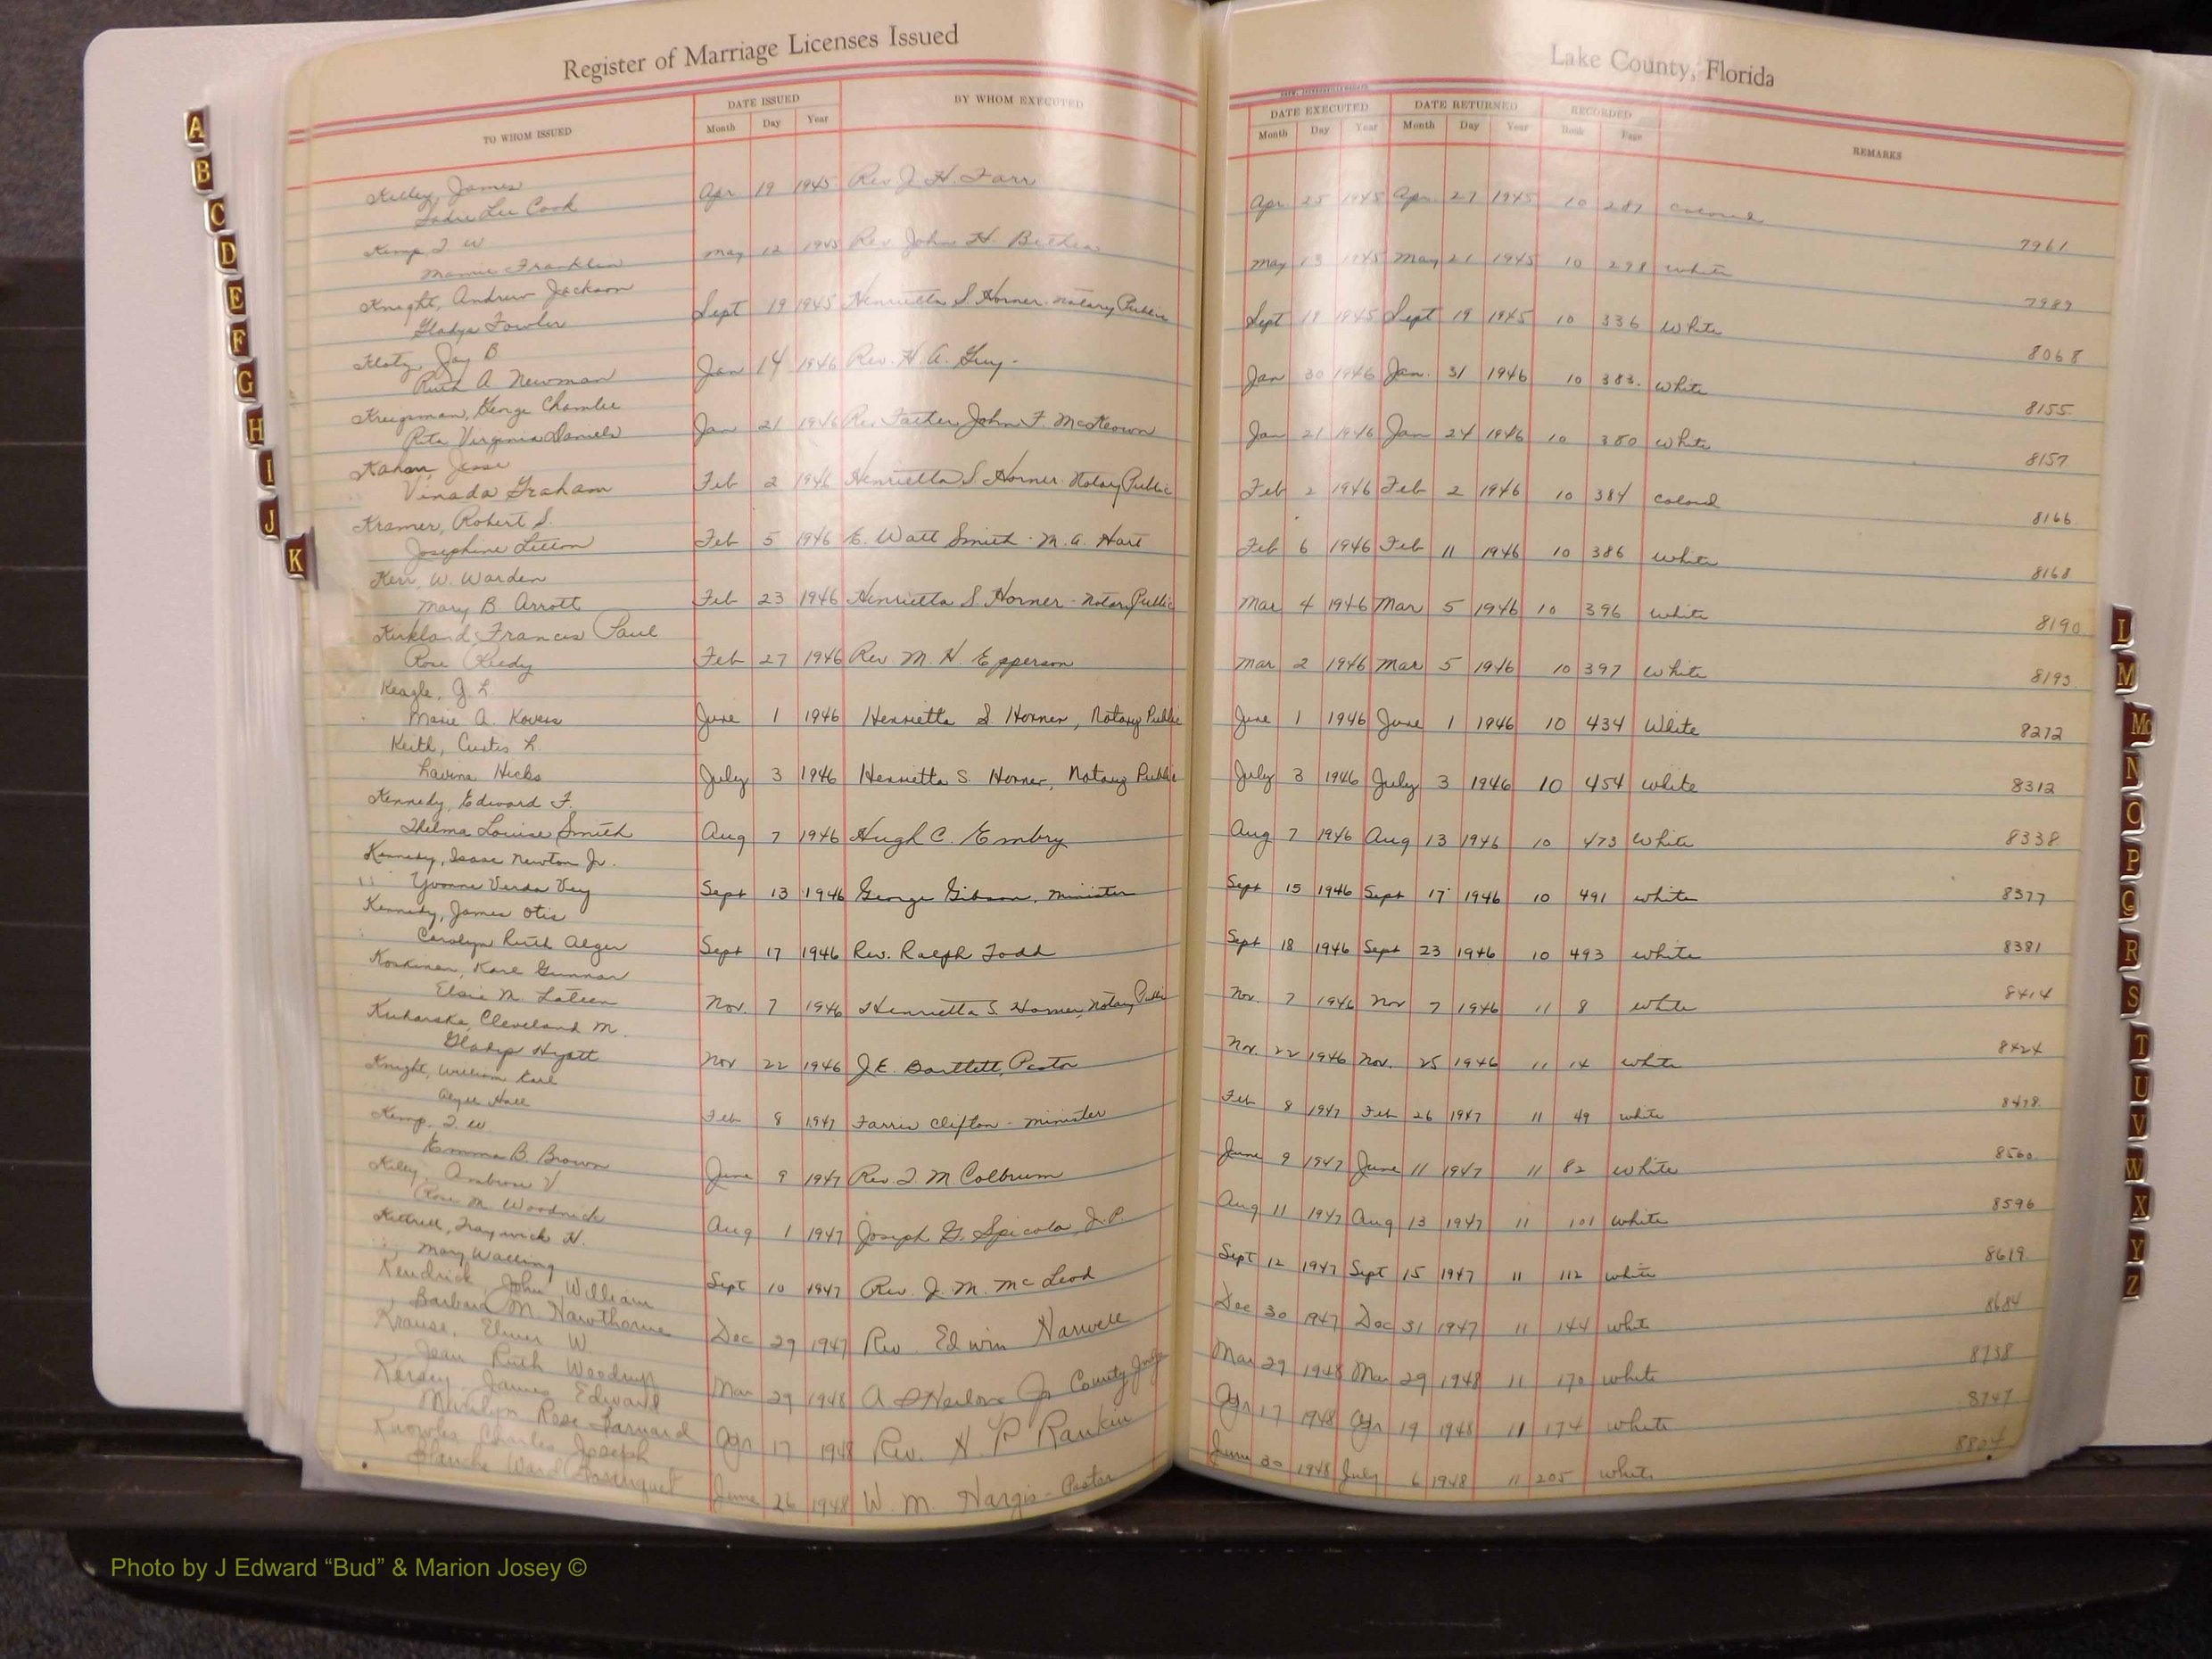 Register of Marriage Licenses Issued
Lake County, Florida
TO WHOM ISSUED
DATE ISSUED
Month Day Year
BY WHOM EXECUTED
DATE EXECUTED
Month Day Year
DATE RETURNED
Month Day Year
RECORDED
Book Page
REMARKS
Kelley, James
Sadie Lee Cook Apr 19 1945 Rev J. H. Farr Apr 25 1945 Apr 27 1945 10 287 colored 7961
Kemp, T W
Mamie Franklin May 12 1945 Rev John H. Bethea May 13 1945 May 21 1945 10 298 white 7989
Knight, Andrew Jackson
Gladys Fowler Sept 19 1945 Henrietta S. Horner Notary Public Sept 19 1945 Sept 19 1945 10 336 White 8068
Klotz, Jay B
Ruth A. Newman Jan 14 1946 Rev. H. A. Guy Jan 30 1946 Jan. 31 1946 10 383. White 8155
George Chamlee
Rita Virginia Daniels Jan 21 1946 Rev Father John F. McKeown Jan 21 1946 Jan 24 1946 10 380 white 8157
Jesse
Vinada Graham Feb 2 1946 Henrietta S Horner Notary Public Feb 2 1946 Feb 2 1946 10 384 colored 8166
Kramer, Robert S.
Josephine Feb 5 1946 E. Watt Smith - M. A. Hart Feb 6 1946 Feb 11 1946 10 386 White 8168
Kerr, W. Warden
Mary B. Arrott Feb 23 1946 Henrietta S Horner - Notary Public Mar 4 1946 Mar 5 1946 10 396 white 8190
Kirkland, Francis Paul
Rose Reedy Feb 27 1946 Rev M. H. Epperson Mar 2 1946 Mar 5 1946 10 397 White 8193
Keagle, J. L
Marie A. Kovers June 1 1946 Henrietta S. Horner, Notary Public June 1 1946 June 1 1946 10 434 White 8272
Keith, Curtis L.
Lavina Hicks July 3 1946 Henrietta S. Horner, Notary Public July 3 1946 July 3 1946 10 454 White 8312
Kennedy, Edward F.
Thelma Louise Smith Aug 7 1946 Hugh C. Embry Aug 7 1946 Aug 13 1946 10 473 White 8338
Kennedy, Isaac Newton Jr.
" Yvonne Verda Sept 13 1946 George Gibson, Minister Sept 15 1946 Sept 17 1946 10 491 white 8377
Kennedy, James Otis
Carolyn Ruth Alger Sept 17 1946 Rev. Ralph Todd Sept 18 1946 Sept 23 1946 10 493 white 8381
Koskinen, Karl Gunnar
Elsie M. Nov. 7 1946 Henrietta S. Horner, Notary Public Nov. 7 1946 Nov 7 1946 11 8 white 8414
Cleveland M.
Gladys Hyatt Nov 22 1946 J.E. Bartlett, Pastor Nov. 22 1946 Nov. 25 1946 11 14 white 8424
Knight, William
Hall Feb 8 1947 Farris Clifton - Minister Feb 8 1947 Feb 26 1947 11 49 white 8478
Kemp, T. W.
Emma B. Brown June 9 1947 Rev. T. M. Colbrum June 9 1947 June 11 1947 11 82 white 8560
Ambrose V
Rose M. Aug 1 1947 Joseph G. Spicola, J.P. Aug 11 1947 Aug 13 1947 11 101 White 8596
Kittrell, Traywick H.
Mary Walling Sept 10 1947 Rev. J. M. McLeod Sept 12 1947 Sept 15 1947 11 112 white 8619
Kendrick, John William
Barbara M. Hawthorne Dec 29 1947 Rev. Edwin Dec 30 1947 Dec 31 1947 11 144 whit 8684
Krause, Elmer W.
Jean Ruth Woodruff Mar 29 1948 County Judge Mar 29 1948 Mar 29 1948 11 170 white 8738
Kersey, James Edward
Marilyn Rose Apr 17 1948 Rev. H. P Rankin Apr 17 1948 Apr 19 1948 11 174 white 8747
Knowles Charles Joseph
Blanche Ward June 26 1948 W. M. Hargis - Pastor June 30 1948 July 6 1948 11 205 white
A
B
C
D
E
F
G
H
I
J
K
L
M
Mc
N
O
P
Q
R
S
T
U
V
W
X
Y
Z
Photo by J Edward “Bud” & Marion Josey ©